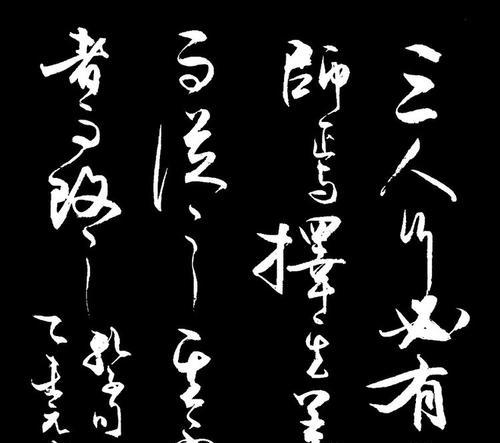 三人行必有
師焉擇其善
而從之其不
者而改之
孔子句